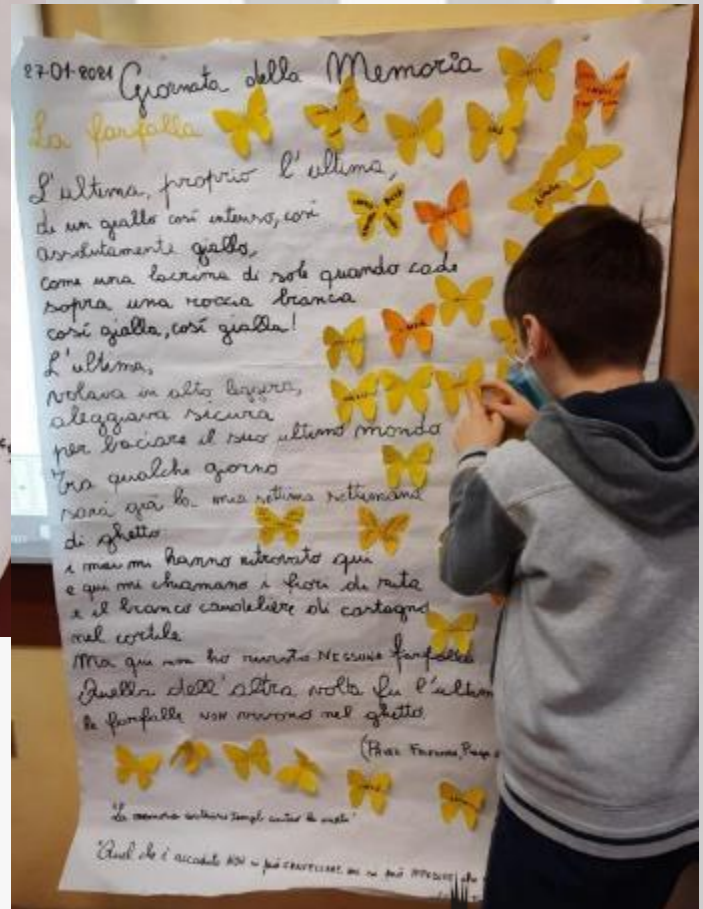 27-01-2021 Giornata della Memoria
La farfalla
L'ultima, proprio l'ultima,
di un giallo così intenso, così
assolutamente giallo,
come una lacrima di sole quando cade
sopra una roccia bianca
così gialla, così gialla!
L'ultima,
volava in alto leggera,
aleggiava sicura
per baciare il suo ultimo mondo
Tra qualche giorno
sarà già la mia settima settimana
di ghetto
i miei mi hanno ritrovato qui
e qui mi chiamano i fiori di ruta
e il bianco candeliere di castagno
nel cortile
Ma qui non ho rivisto NESSUNA farfalla
Quella dell'altra volta fu l'ultim
le farfalle NON vivono nel ghetto.
(Pavel Praga
"La memoria contro
"Quel che è accaduto NON si può CANCELLARE, ma si può IMPEDIRE che